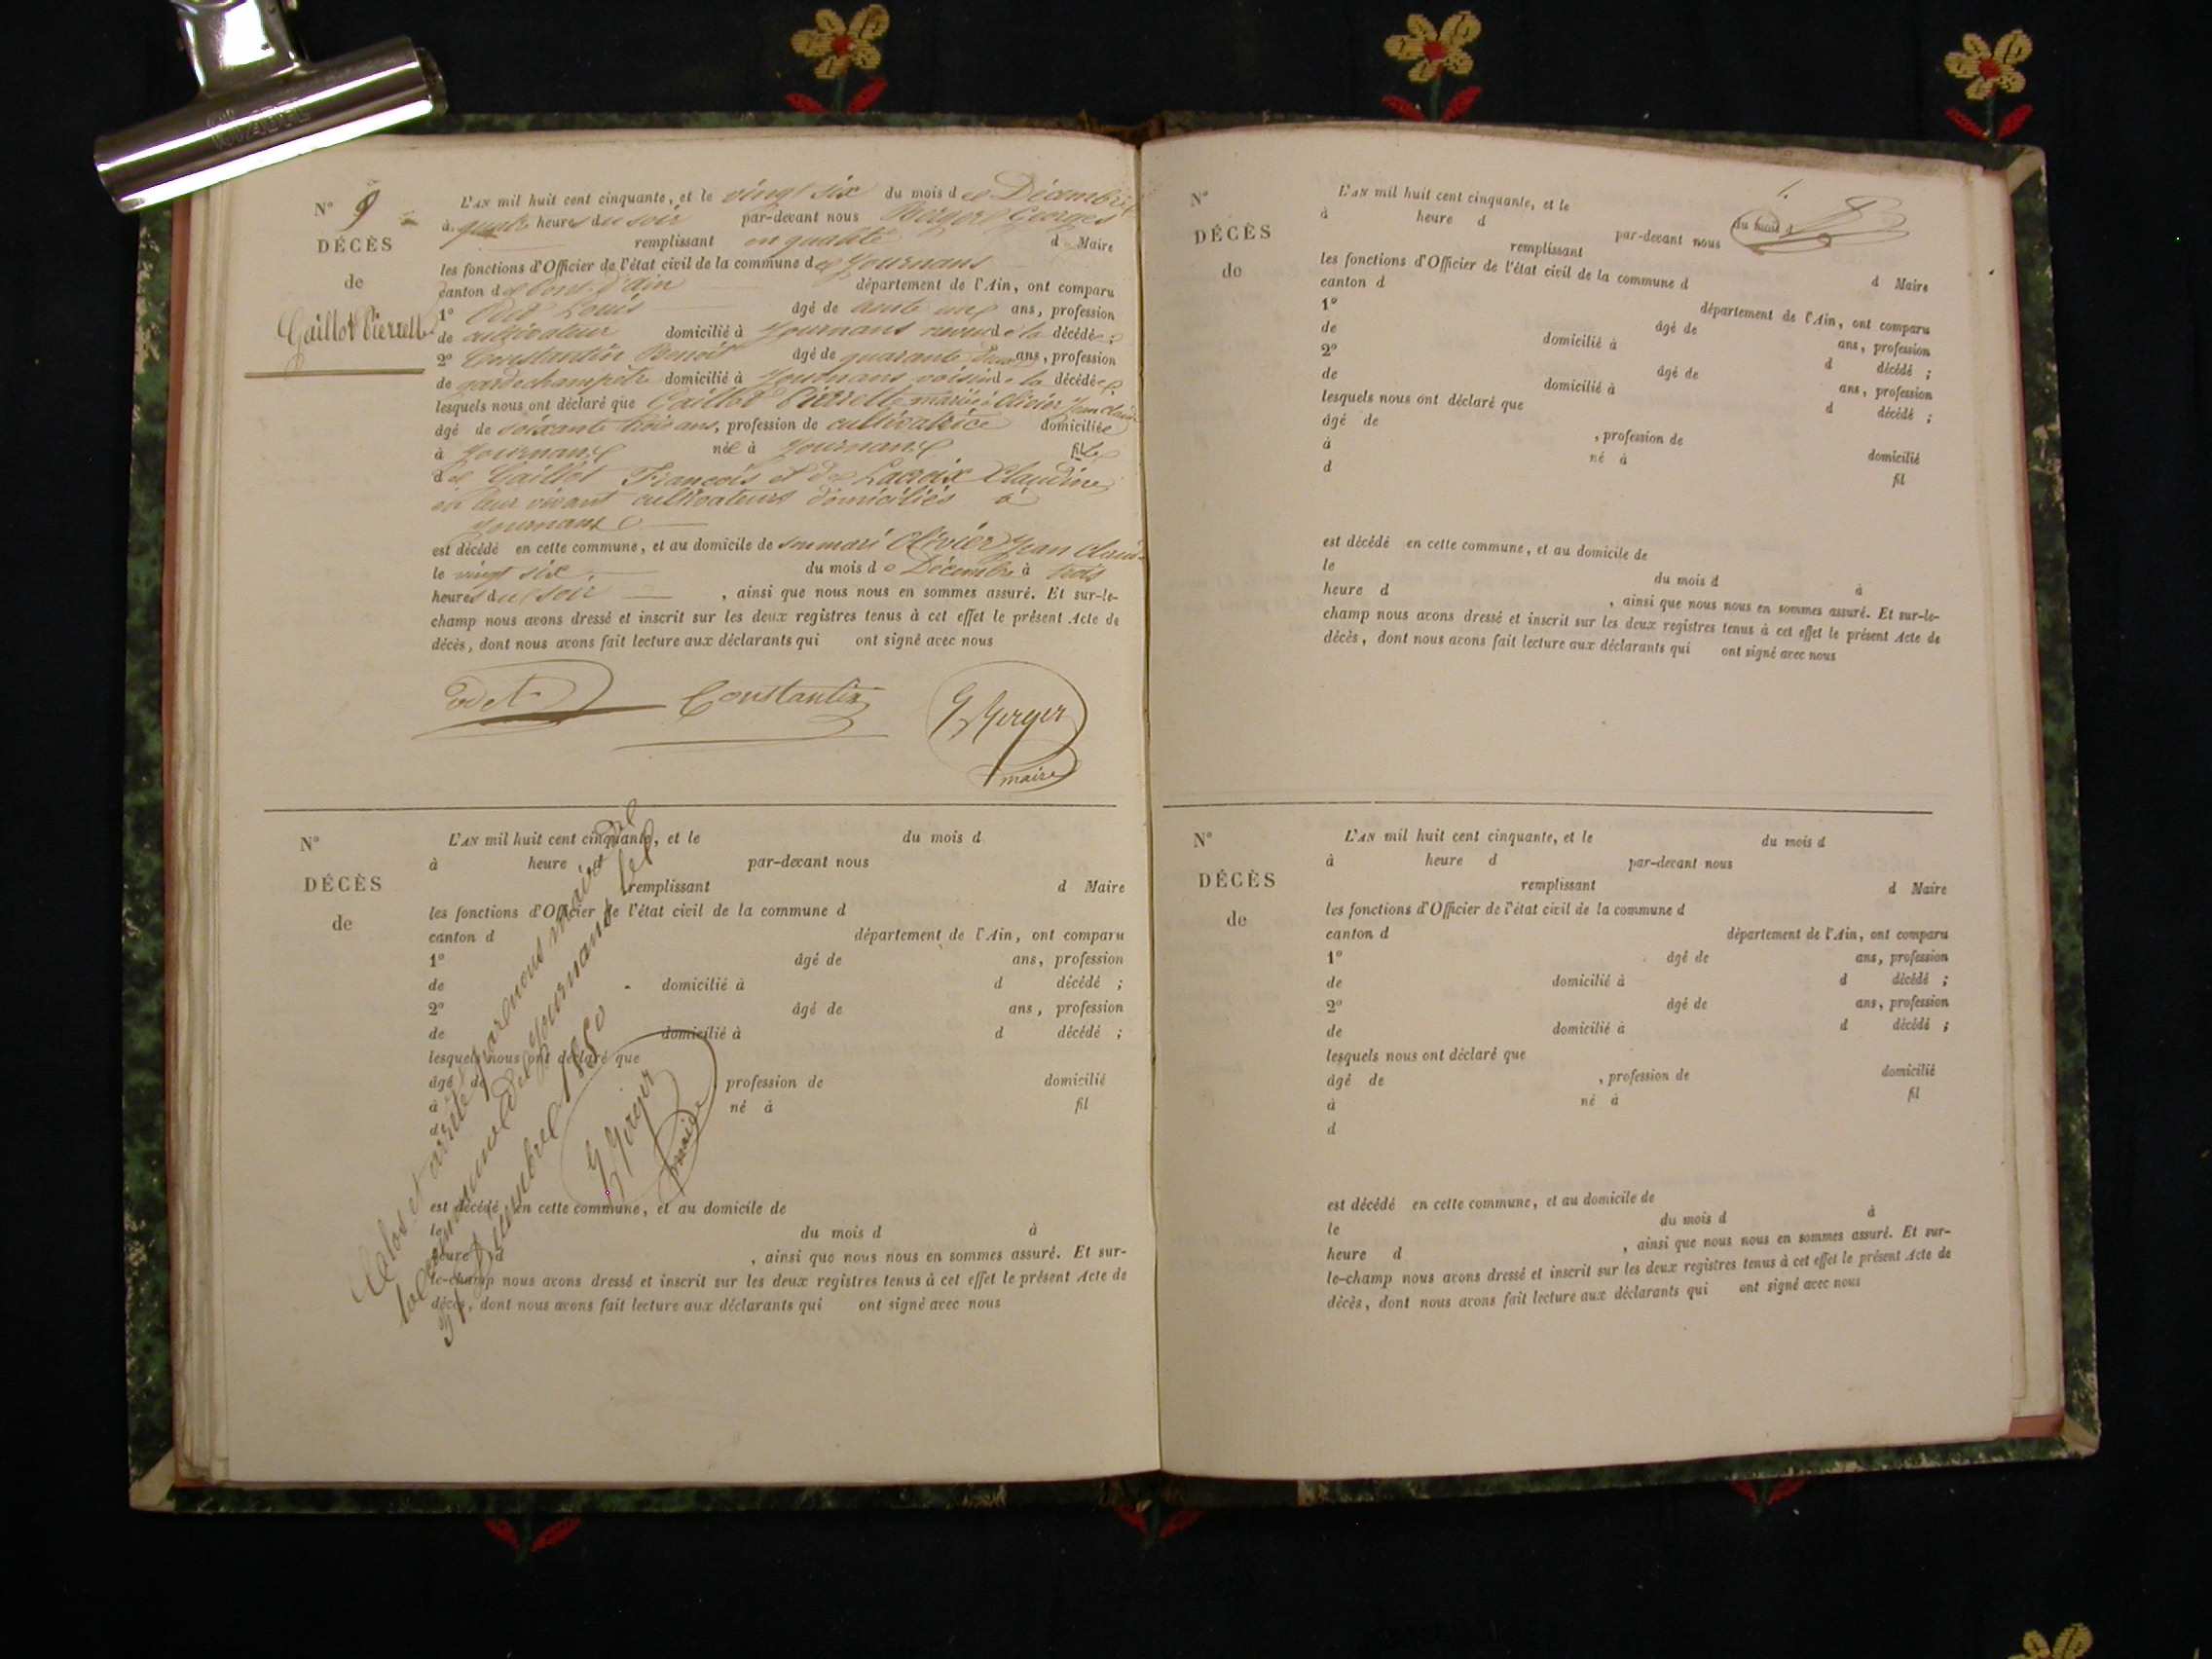 N° 9
DÉCÈS
de
Caillot Pierrette
L'AN mil huit cent cinquante, et le vingt six du mois de Décembre
à quatre heures du soir par-devant nous Berger Georges
remplissant en qualité d Maire
les fonctions d'Officier de l'état civil de la commune de Journans
canton de pont d'ain département de l'Ain, ont comparu
1° Louis âgé de ans, profession
de cultivateur domicilié à Journans de la décédée ;
2° Constantin Benoit âgé de quarante deux ans, profession
de garde champêtre domicilié à Journans voisin de la décédée ;
lesquels nous ont déclaré que Caillot Pierrette mariée à Olivier Jean claude
âgé de soixante trois ans, profession de cultivatrice domiciliée
à Journans née à Journans fille
de Caillot François et de Lacroix Claudine
en leur vivant cultivateurs domiciliés à
Journans
est décédé en cette commune, et au domicile de son mari Olivier Jean claude
le vingt six du mois de Décembre à trois
heures du soir , ainsi que nous nous en sommes assuré. Et sur-le-
champ nous avons dressé et inscrit sur les deux registres tenus à cet effet le présent Acte de
décès, dont nous avons fait lecture aux déclarants qui ont signé avec nous
Constantin
G Berger
maire
N°
DÉCÈS
de
L'AN mil huit cent cinquante, et le du mois d
à heure d par-devant nous
remplissant d Maire
les fonctions d'Officier de l'état civil de la commune d
canton d département de l'Ain, ont comparu
1° âgé de ans, profession
de domicilié à d décédé ;
2° âgé de ans, profession
de domicilié à d décédé ;
lesquels nous ont déclaré que
âgé de profession de domicilié
à né à fil
d
est décédé en cette commune, et au domicile de
le du mois d à
heure d , ainsi que nous nous en sommes assuré. Et sur-
le-champ nous avons dressé et inscrit sur les deux registres tenus à cet effet le présent Acte de
décès, dont nous avons fait lecture aux déclarants qui ont signé avec nous
Clos et arrêté par nous maire de
la commune de Journans le
31 Décembre 1850
G Berger
maire
N°
DÉCÈS
de
L'AN mil huit cent cinquante, et le du mois d
à heure d par-devant nous
remplissant d Maire
les fonctions d'Officier de l'état civil de la commune d
canton d département de l'Ain, ont comparu
1° âgé de ans, profession
de domicilié à d décédé ;
2° âgé de ans, profession
de domicilié à d décédé ;
lesquels nous ont déclaré que
âgé de , profession de domicilié
à né à fil
d
est décédé en cette commune, et au domicile de
le du mois d à
heure d , ainsi que nous nous en sommes assuré. Et sur-le-
champ nous avons dressé et inscrit sur les deux registres tenus à cet effet le présent Acte de
décès, dont nous avons fait lecture aux déclarants qui ont signé avec nous
N°
DÉCÈS
de
L'AN mil huit cent cinquante, et le du mois d
à heure d par-devant nous
remplissant d Maire
les fonctions d'Officier de l'état civil de la commune d
canton d département de l'Ain, ont comparu
1° âgé de ans, profession
de domicilié à d décédé ;
2° âgé de ans, profession
de domicilié à d décédé ;
lesquels nous ont déclaré que
âgé de , profession de domicilié
à né à fil
d
est décédé en cette commune, et au domicile de
le du mois d à
heure d , ainsi que nous nous en sommes assuré. Et sur-
le-champ nous avons dressé et inscrit sur les deux registres tenus à cet effet le présent Acte de
décès, dont nous avons fait lecture aux déclarants qui ont signé avec nous